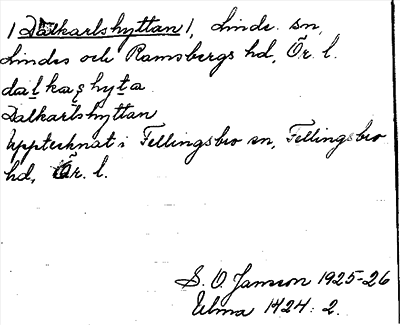 /Dalkarlshyttan/, Linde sn,
Lindes och Ramsbergs hd, Ör. l.
dalkaşhyta
Dalkarlshyttan
Upptecknat i Fellingsbro sn, Fellingsbro
hd, Ör. l.
S. O. Jansson 1925-26
Ulma 1424: 2.